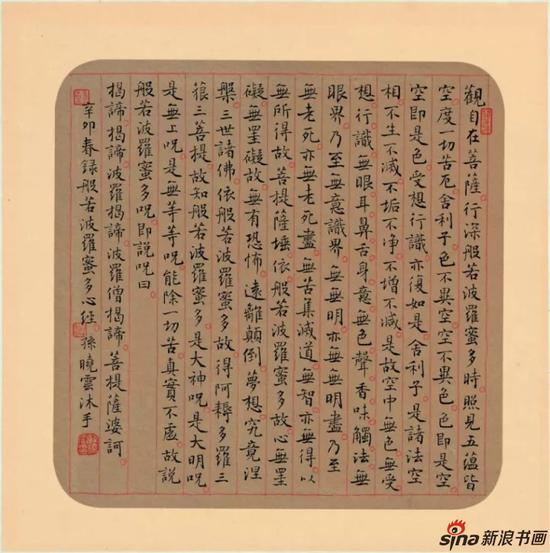 觀自在菩薩行深般若波羅蜜多時照見五蘊皆
空度一切苦厄舍利子色不異空空不異色色即是空
空即是色受想行識亦復如是舍利子是諸法空
相不生不滅不垢不净不增不減是故空中無色無受
想行識無眼耳鼻舌身意無色聲香味觸法無
眼界乃至無意識界無無明亦無無明盡乃至
無老死亦無老死盡無苦集滅道無智亦無得以
無所得故菩提薩埵依般若波羅蜜多故心無罣
礙無罣礙故無有恐怖遠離顛倒夢想究竟涅
槃三世諸佛依般若波羅蜜多故得阿耨多羅三
藐三菩提故知般若波羅蜜多是大神咒是大明咒
是無上咒是無等等咒能除一切苦真實不虛故說
般若波羅蜜多咒即說咒曰
揭諦揭諦波羅揭諦波羅僧揭諦菩提薩婆訶
辛卯春録般若波羅蜜多心經 孫曉雲沐手
sina新浪书画